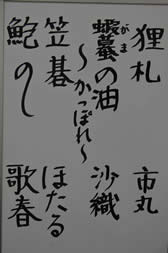 狸札 市丸
蝦蟇の油 沙織
がま
〜かっぽれ〜
笠碁 ほたる
鮑のし 歌春